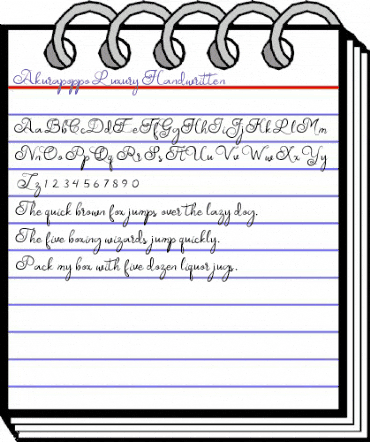 Akurapoppo Luxury Handwritten
Aa Bb Cc Dd Ee Ff Gg Hh Ii Jj Kk Ll Mm
Nn Oo Pp Qq Rr Ss Tt Uu Vv Ww Xx Yy
Zz 1 2 3 4 5 6 7 8 9 0
The quick brown fox jumps over the lazy dog.
The five boxing wizards jump quickly.
Pack my box with five dozen liquor jugs.